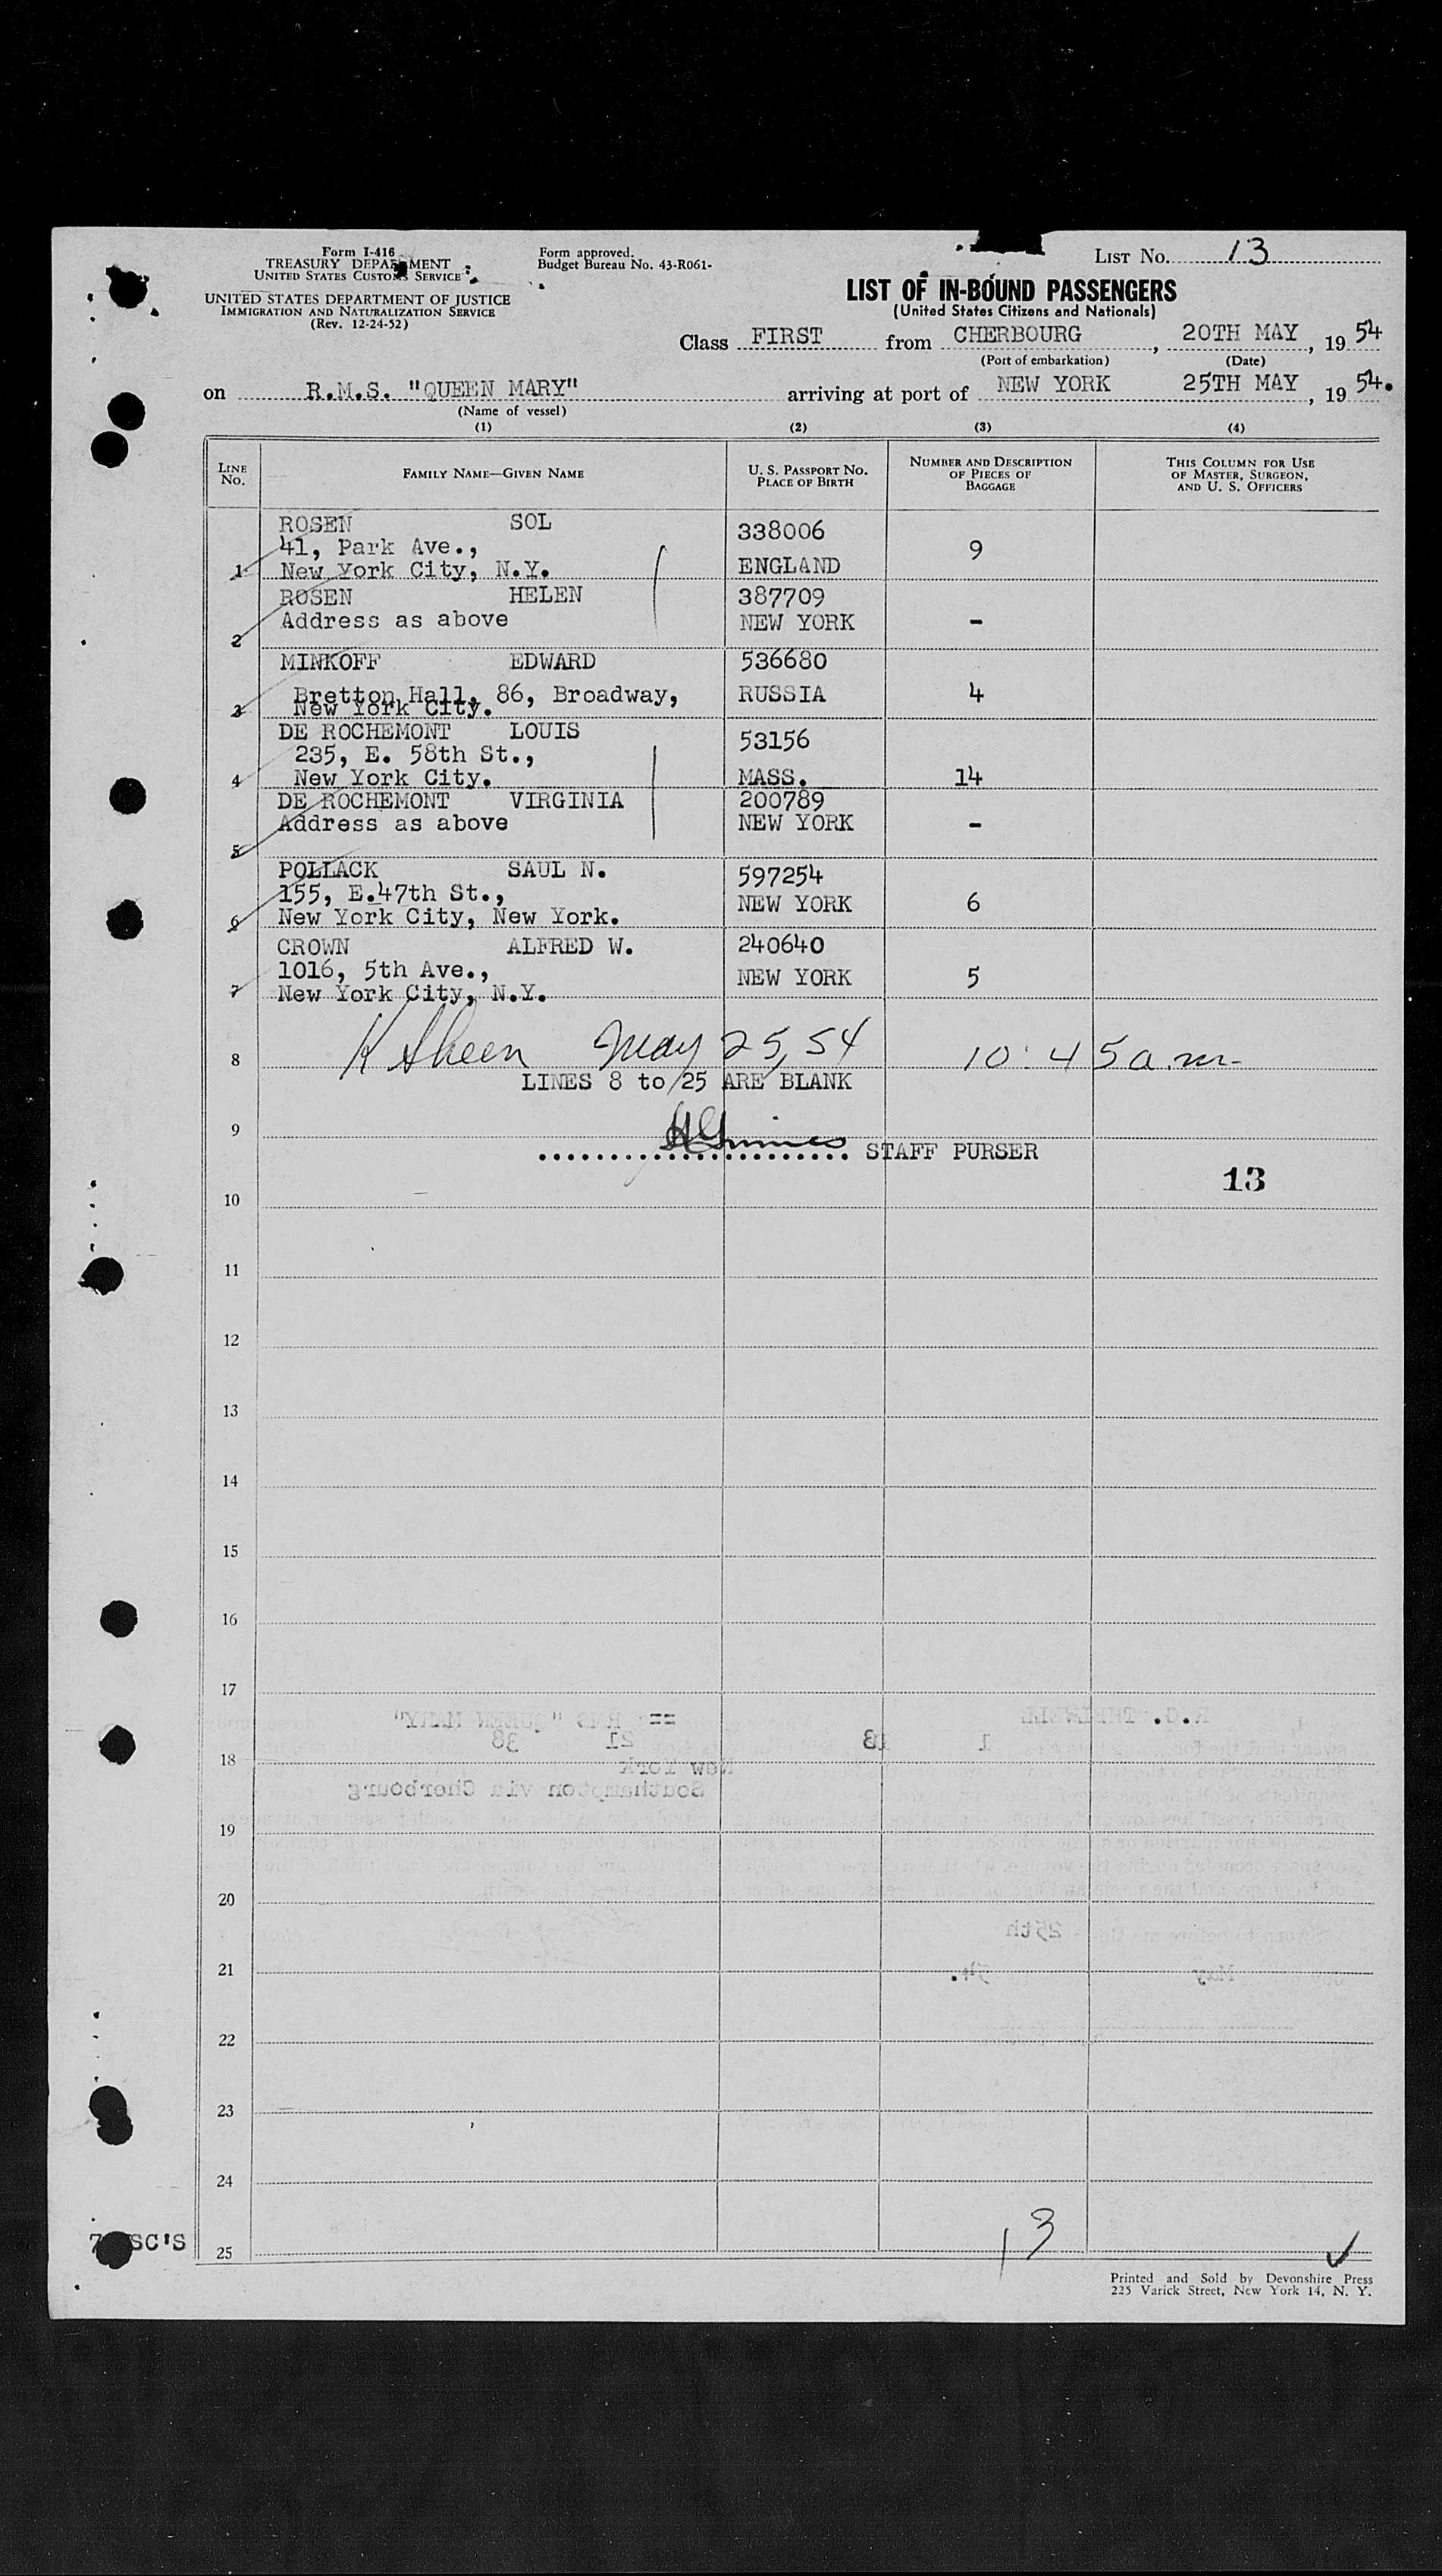 Form I-416
TREASURY DEPARTMENT
UNITED STATES CUSTOMS SERVICE
UNITED STATES DEPARTMENT OF JUSTICE
IMMIGRATION AND NATURALIZATION SERVICE
(Rev. 12-24-52)
Form approved.
Budget Bureau No. 43-R061-
LIST No. 13
LIST OF IN-BOUND PASSENGERS
(United States Citizens and Nationals)
Class FIRST from CHERBOURG, 20TH MAY, 19 54
(Port of embarkation) (Date)
on R.M.S. "QUEEN MARY" arriving at port of NEW YORK 25TH MAY, 19 54.
(Name of vessel)
(1) (2) (3) (4)
LINE No. FAMILY NAME—GIVEN NAME U. S. PASSPORT No. PLACE OF BIRTH NUMBER AND DESCRIPTION OF PIECES OF BAGGAGE THIS COLUMN FOR USE OF MASTER, SURGEON, AND U. S. OFFICERS
ROSEN SOL 338006
41, Park Ave., 9
1 New York City, N.Y. ENGLAND
ROSEN HELEN 387709
Address as above NEW YORK -
2
MINKOFF EDWARD 536680
Bretton Hall, 86, Broadway, RUSSIA 4
3 New York City.
DE ROCHEMONT LOUIS 53156
235, E. 58th St.,
4 New York City. MASS. 14
DE ROCHEMONT VIRGINIA 200789
Address as above NEW YORK -
5
POLLACK SAUL N. 597254
155, E.47th St., NEW YORK 6
6 New York City, New York.
CROWN ALFRED W. 240640
1016, 5th Ave., NEW YORK 5
7 New York City, N.Y.
8 K Sheen May 25, 54 10:45 a.m.
LINES 8 to 25 ARE BLANK
9
STAFF PURSER
13
10
11
12
13
14
15
16
17
R.M.S "QUEEN MARY"
18 38 21 13 1
New York
Southampton via Cherbourg
19
20
25th
21 May 54.
22
23
24
13
7 SC'S
25
Printed and Sold by Devonshire Press
225 Varick Street, New York 14, N. Y.